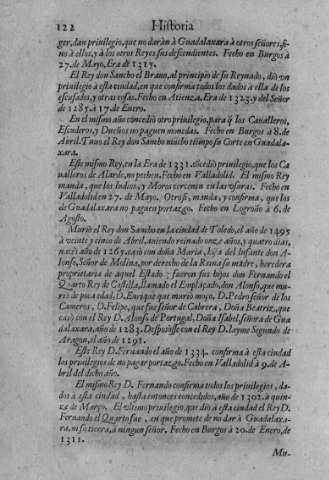 122 Historia
ger, dan privilegio, que no daràn à Guadalaxara à otros señores, si-
no à ellos, y à los otros Reyes sus descendientes. Fecho en Burgos à
27. de Mayo, Era de 1315.
El Rey don Sancho el Brauo, al principio de su Reynado, diò vn
privilegio à esta ciudad, en que confirma todos los dados à ella de los
escusados, y otras cosas. Fecho en Atiença, Era de 1323. y del Señor
de 1285. à 17. de Enero.
En el mismo año concediò otro privilegio, para q̃ los Canalleros,
Escuderos, y Dueños no paguen monedas. Fecho en Burgos à 8. de
Abril. Tuuo el Rey don Sancho mucho tiempo su Corte en Guadala-
xara.
Este mismo Rey, en la Era de 1331. cõcediò privilegio, que los Ca
ualleros de Alarde, no pechen. Fecho en Valladolid. El mismo Rey
manda, que los Iudios, y Moros no excedan en las vsuras. Fecho en
Valladolid en 27. de Mayo, Otrosi, manda, y confirma, que los
de Guadalaxara no paguen portazgo. Fecho en Logroño à 6. de
Agosto.
Muriò el Rey don Sancho en la ciudad de Toledo, el año de 1495
à veinte y cinco de Abril, auiendo reinado onze años, y quatro dias,
naciò año de 1265. casò con doña Maria, hija del Infante don A-
lonso, Señor de Molina, por derecho de la Reina su madre, heredera
proprietaria de aquel Estado; fueron sus hijos don Fernando el
Quarto Rey de Castilla, llamado el Emplaçado, don Alonso, que mu-
riò de poca edad, D. Enrique que muriò moço, D. Pedro señor de los
Cameros, D. Felipe, que fue señor de Cabrera, Doña Beatriz, que
casò con el Rey D. Alonso de Portugal, Doña Isabel, señora de Gua
dalaxara, año de 1283. Desposòse con el Rey D. Iayme Segundo de
Aragon, el año de 1291.
Este Rey D. Fernando el año de 1334. confirma à esta ciudad
los privilegios de no pagar portazgo. Fecho en Valladolid à 9. de A-
bril del dicho año.
El mismo Rey D. Fernando confirma todos los privilegios, da-
dos à esta ciudad, hasta entonces concedidos, año de 1302. à quin-
ze de Março. El vltimo privilegio, que diò à esta ciudad el Rey D.
Fernando el Quarto fue, en que promete de no dar à Guadalaxa-
ra, ni su tierra, à ningun señor. Fecho en Burgos à 20. de Enero, de
1311.
Mu.